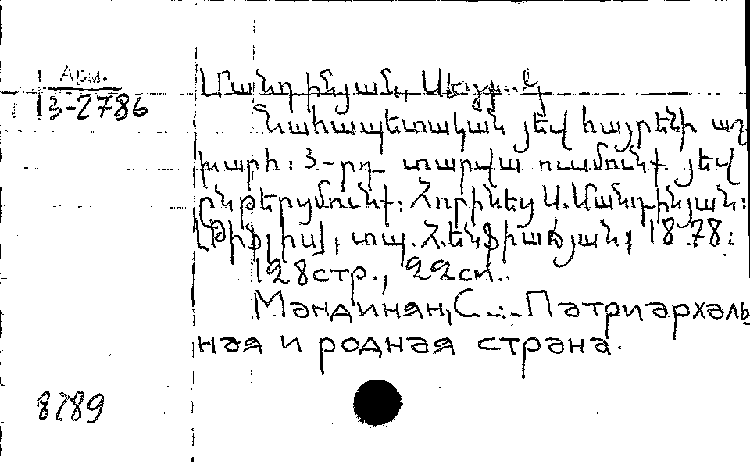 Арм.
13-2786
Մանդինյան, Սեդրակ
Նահապետական յեվ հայրենի աշ
խարհ: 3-րդ տարվա ուսմունք յեվ
ընթերցմունք: Հորինեց Ս.Մանդինյան:
Թիֆլիս, տպ. Հ.Ենֆիաճյան, 1878:
128стр., 22см.
Мандинян, С .-. Патриархаль
ная и родная страна.
8789